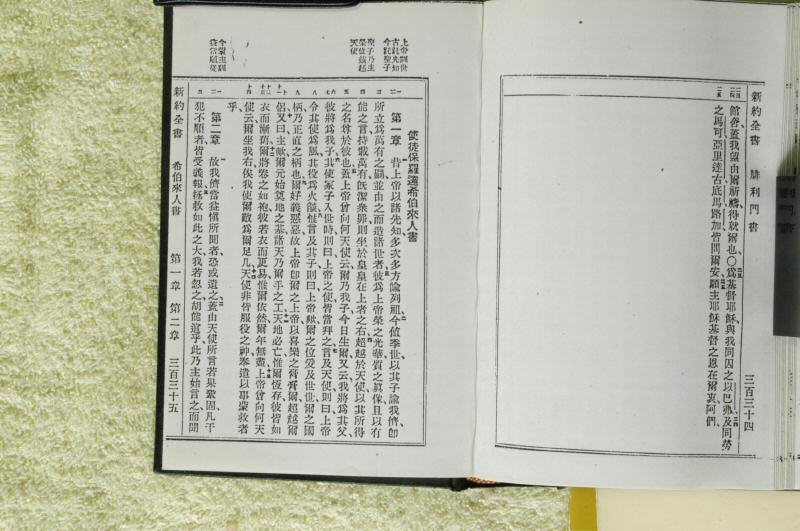 新約全書 腓利門書 三百三十四
館舍、蓋我望由爾所禱、得就爾也、○爲基督耶穌與我同囚之以巴弗、及同勞
之馬可、亞里達古、底馬、路加、皆問爾安、願主耶穌基督之恩、在爾衷、阿們、
古託先知
今託聖子
聖子乃主
天使
今得主訓
益當順從
使徒保羅達希伯來人書
第一章 昔上帝以諸先知、多次多方諭列祖、今値季世、以其子諭我儕、卽
所立爲萬有之嗣、並由之而造諸世者、彼爲上帝榮之光華、質之眞像、且以有
能之言、持載萬有、旣潔衆罪、則坐於皇皇在上者之右、超越於天使、以其所得
之名、尊於彼也、蓋上帝曾向何天使云、爾乃我子、今日生爾、又云、我將爲其父、
彼將爲我子、其使冢子入世時、則曰、上帝之使皆當拜之、言及天使、則曰、上帝
令其使爲風、其役爲火燄、惟言及其子則曰、上帝歟、爾之位爰及世世、爾之國
柄、乃正直之柄也、爾好義惡惡、故上帝卽爾之上帝、以喜樂之膏膏爾、超越爾
侶、又曰、主歟、爾元始奠地之基、諸天乃爾手之工、天地必亡、惟爾恆存、彼皆如
衣而漸舊、爾將卷之如袍、彼若衣而更易、惟爾依然、爾年無盡、上帝曾向何天
使云、爾坐我右、俟我使爾敵爲爾足几、天使非皆服役之神、奉遣以事蒙救者
乎、
第二章 故我儕當益愼所聞者、恐或遺之、蓋由天使所言、若果鞏固、凡干
犯不順者、皆受義報、矧救如此之大、我若忽之、胡能逭乎、此乃主始言之、而聞
新約全書 希伯來人書 第一章 第二章 三百三十五